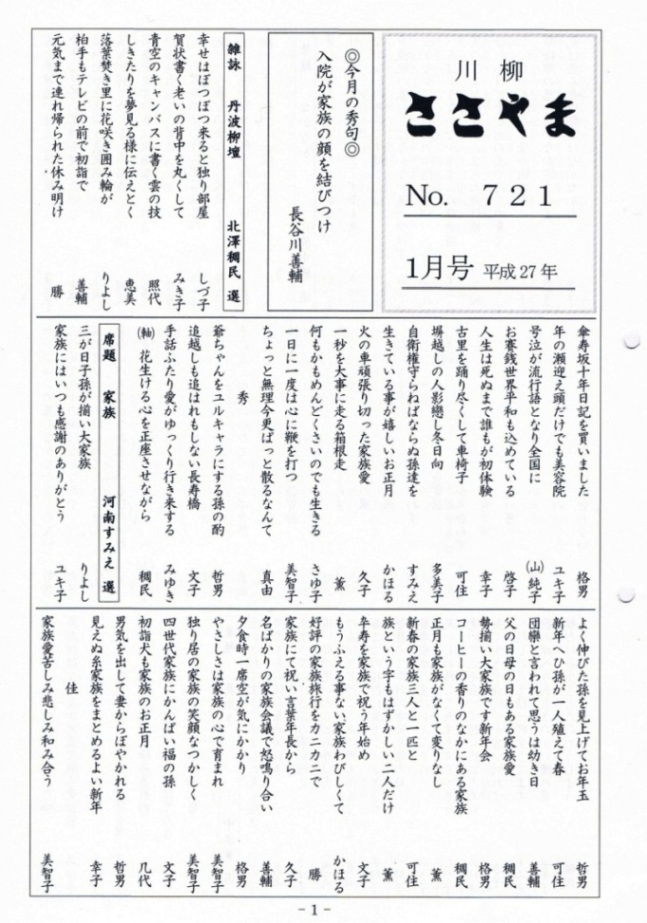 川柳
ささやま
No. 721
1月号 平成27年
◎今月の秀句◎
入院が家族の顔を結びつけ
長谷川善輔
雑詠 丹波柳壇 北澤稠民 選
幸せはぽつぽつ来ると独り部屋 しづ子
賀状書く老いの背中を丸くして みき子
青空のキャンバスに書く雲の技 照代
しきたりを夢見る様に伝えとく 恵美
落葉焚き里に花咲き囲み輪が りよし
柏手もテレビの前で初詣で 善輔
元気まで連れ帰られた休み明け 勝
傘寿坂十年日記を買いました 格男
年の瀬迎え頭だけでも美容院 ユキ子
号泣が流行語となり全国に (山)純子
お賽銭世界平和も込めている 啓子
人生は死ぬまで誰もが初体験 幸子
古里を踊り尽くして車椅子 可住
塀越しの人影戀し冬日向 多美子
自衛権守らねばならぬ孫達を すみえ
生きている事が嬉しいお正月 かほる
火の車頑張り切った家族愛 久子
一秒を大事に走る箱根走 薫
何もかもめんどくさいのでも生きる さゆ子
一日に一度は心に鞭を打つ 美智子
ちょっと無理今更ぱっと散るなんて 真由
秀
爺ちゃんをユルキャラにする孫の酌 哲男
追越しも追はれもしない長寿橋 文子
手話ふたり愛がゆっくり行き来する みゆき
(軸) 花生ける心を正座させながら 稠民
席題 家族 河南すみえ 選
三が日子孫が揃い大家族 りよし
家族にはいつも感謝のありがとう ユキ子
よく伸びた孫を見上げてお年玉 哲男
新年へひ孫が一人殖えて春 可住
団欒と言われて思うは幼き日 善輔
父の日母の日もある家族愛 稠民
勢揃い大家族です新年会 格男
コーヒーの香りのなかにある家族 稠民
正月も家族がなくて変りなし 薫
新春の家族三人と一匹と 可住
族という字もはずかしい二人だけ 薫
傘寿を家族で祝う年始め 文子
もうふえる事ない家族わびしくて かほる
好評の家族旅行をカニカニで 勝
家族にて祝い言葉年長から 久子
名ばかりの家族会議で怒鳴り合い 善輔
夕食時一席空が気にかかり 格男
やさしさは家族の心で育まれ 美智子
独り居の家族の笑顔なつかしく 美智子
四世代家族にかんぱい福の孫 文子
初詣犬も家族のお正月 几代
男気を出して妻からぼやかれる 哲男
見えぬ糸家族をまとめるよい新年 幸子
佳
家族愛苦しみ悲しみ和み合う 美智子
- 1 -